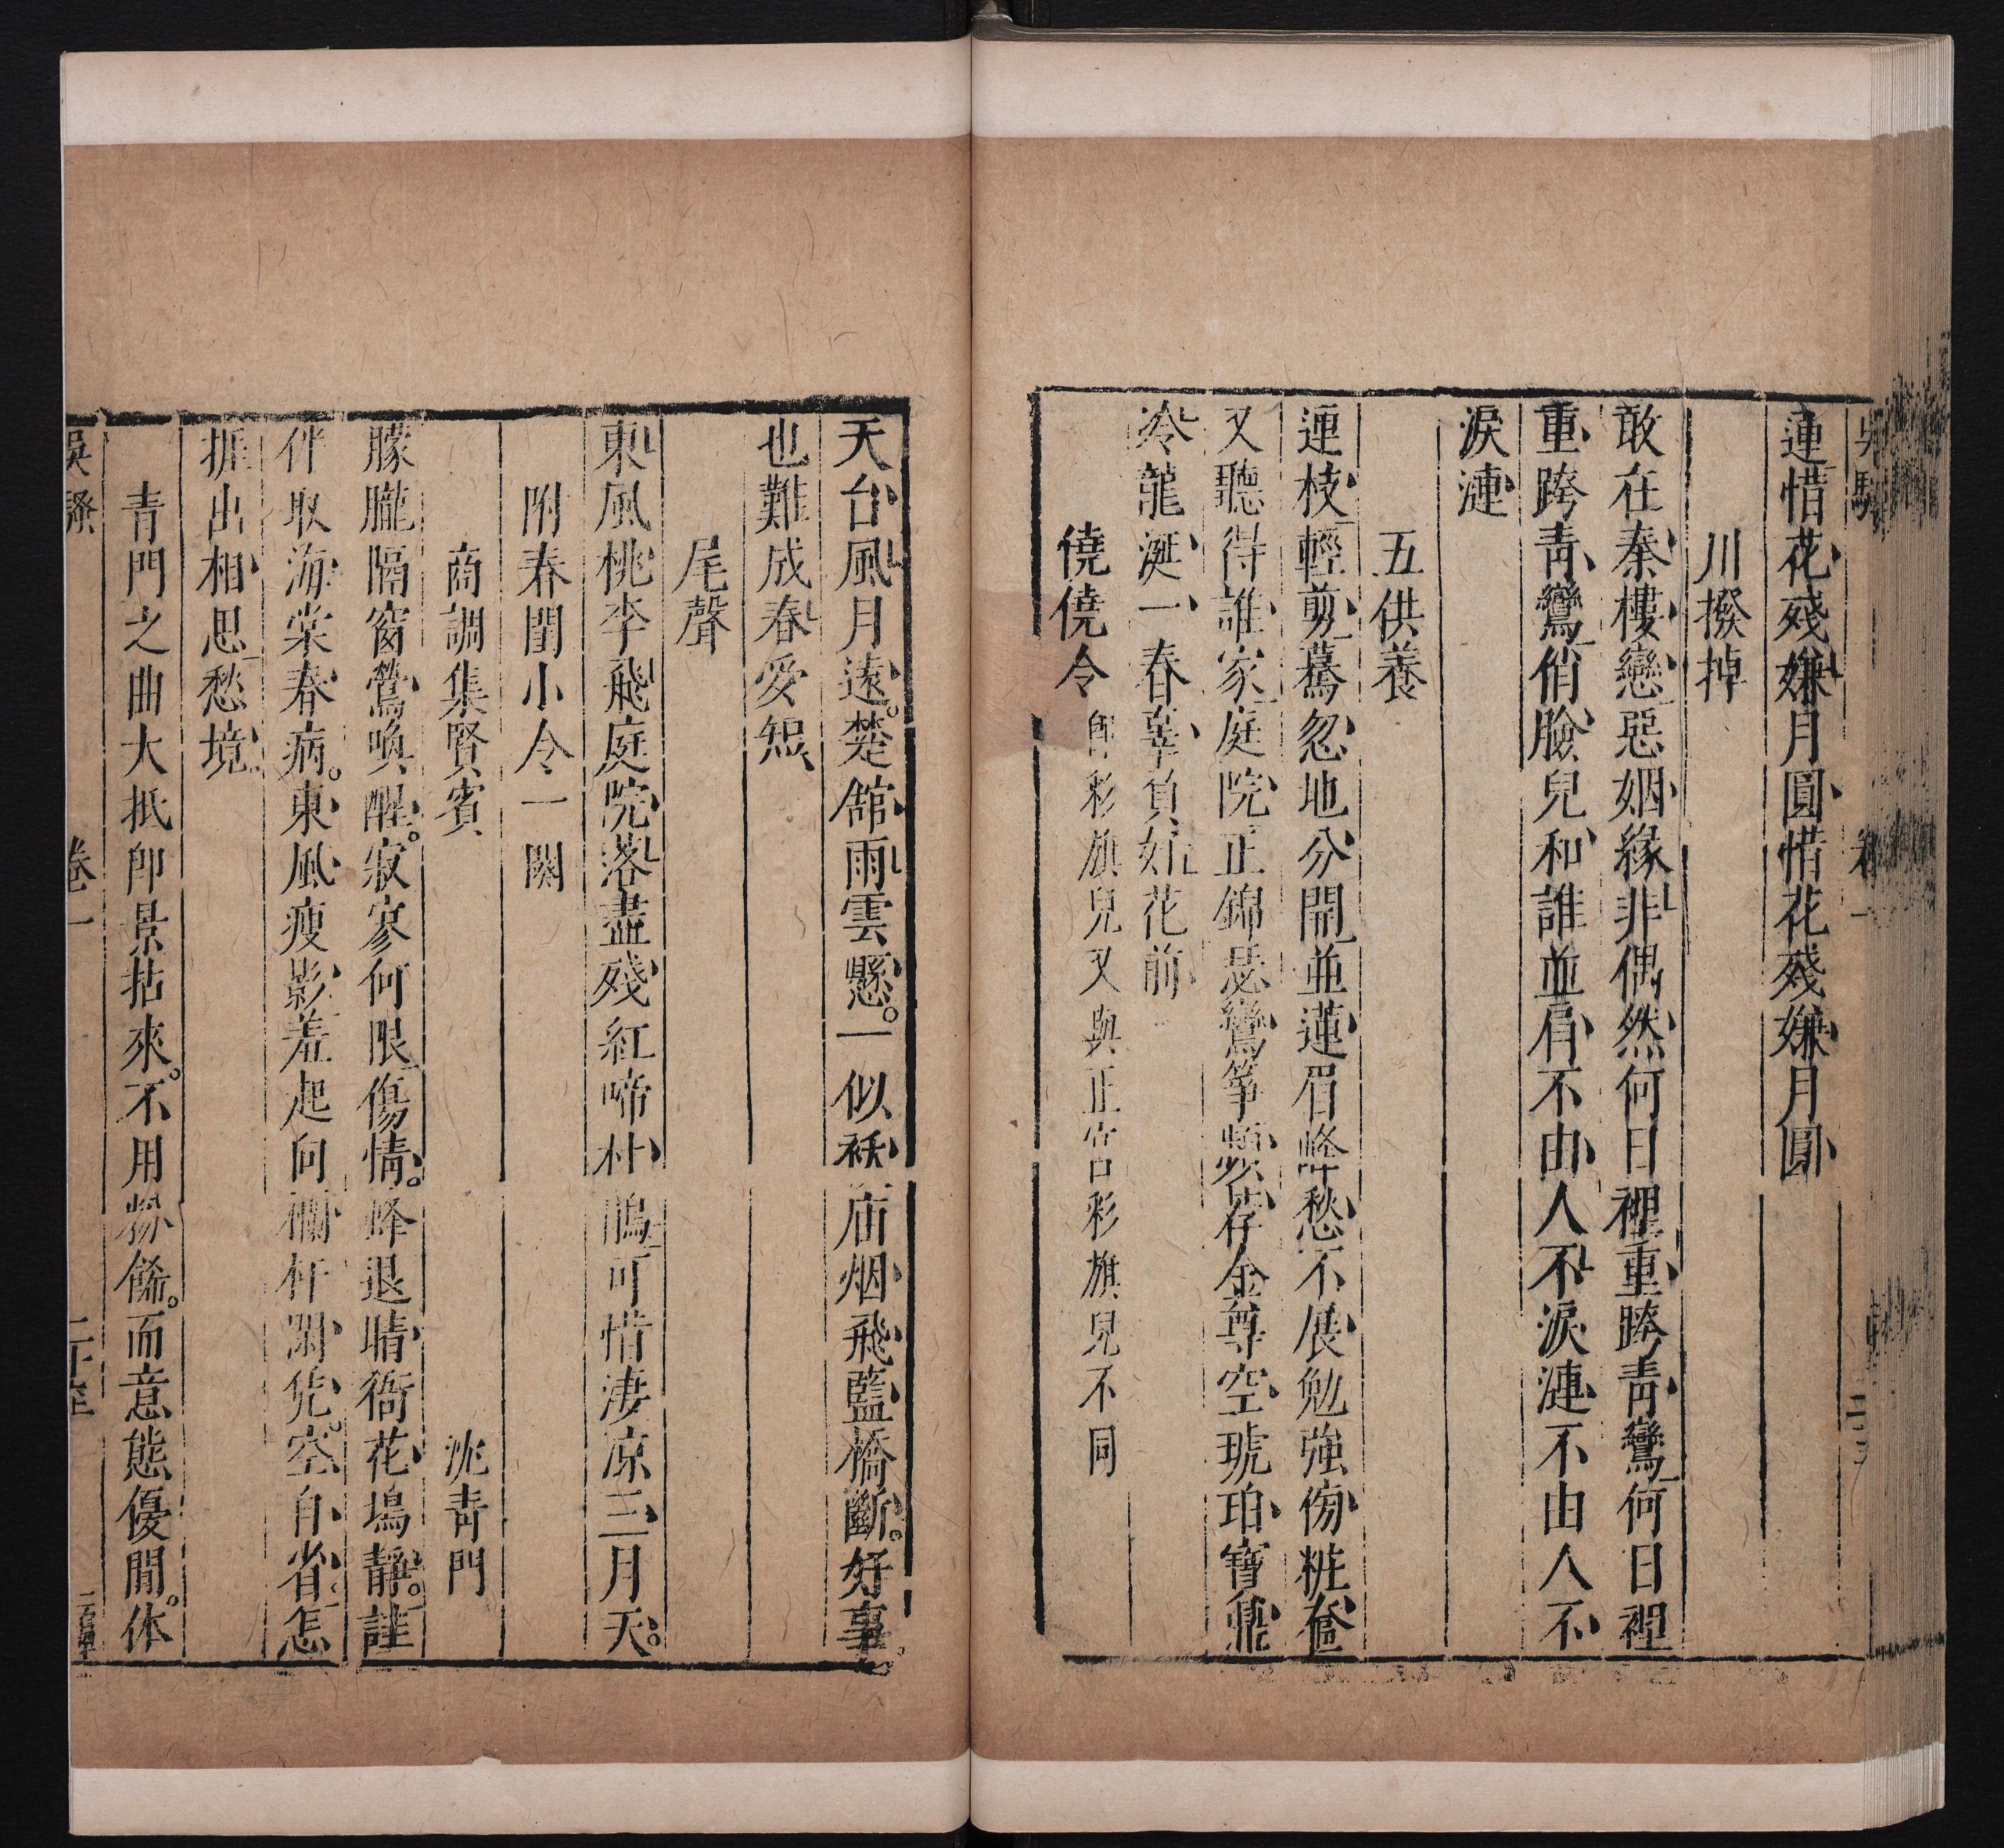 蓮惜花殘嫌月圓惜花殘嫌月圓
川撥掉
敢在秦樓戀惡姻緣非偶然何日裡重跨青鸞何日裡
重跨青鸞俏臉兒和誰並肩不由人不淚漣不由人不
淚漣
五供養
連枝輕剪驀忽地分開並蓮眉峰愁不展勉強傍粧奩
又聽得誰家庭院正錦瑟鸞箏頻荐金尊空琥珀寶鼎
冷龍涎一春辜負好花前
僥僥令 即彩旗兒又與正宮彩旗兒不同
天台風月遠楚館雨雲懸一似祅庙烟飛藍橋斷好事
也難成春受㷀
尾聲
東風桃李飛庭院落盡殘紅啼杜鵑可惜淒凉三月天
附春閨小令一闋
商調集賢賓 沈青門
朦朧隔窗鶯喚醒寂寥何限傷情蜂退晴衙花塢靜謎
伴取海棠春病東風瘦影羞起向欄杆閑凭空自省怎
捱出相思愁境
青門之曲大抵即景拈來不用粉餙而意態優閒休
吳騷 卷一